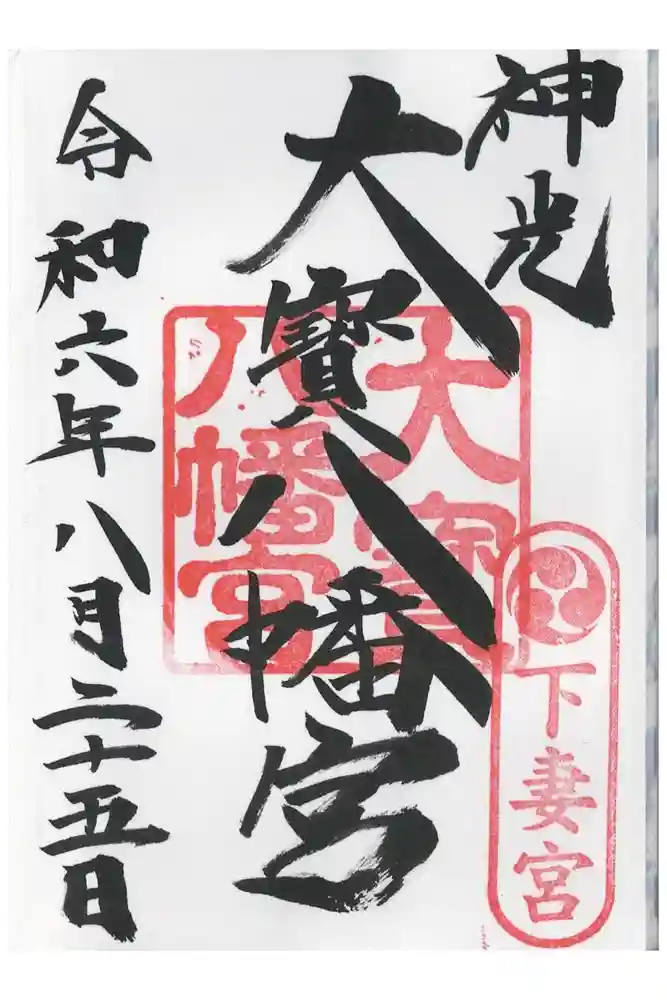 神光
大寳八幡宮
大寳
八幡宮
下妻宮
令和六年八月二十五日